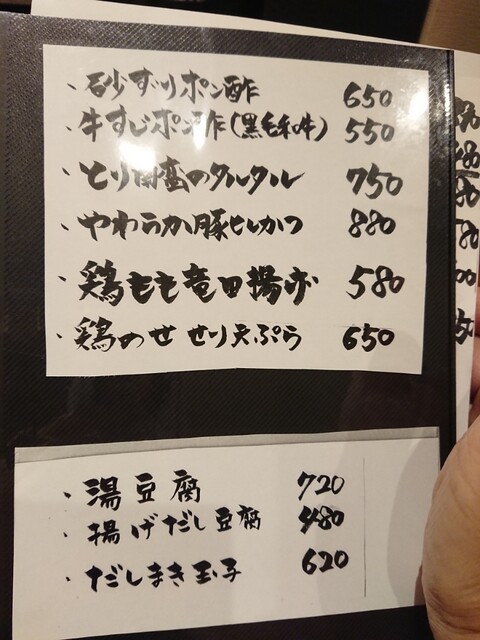 ・砂ずりポン酢 650
・牛すじポン酢(黒毛和牛) 550
・とり南蛮のタルタル 750
・やわらか豚ヒレカツ 880
・鶏もも竜田揚げ 580
・鶏のせせり天ぷら 650
・湯豆腐 720
・揚げだし豆腐 480
・だしまき玉子 620